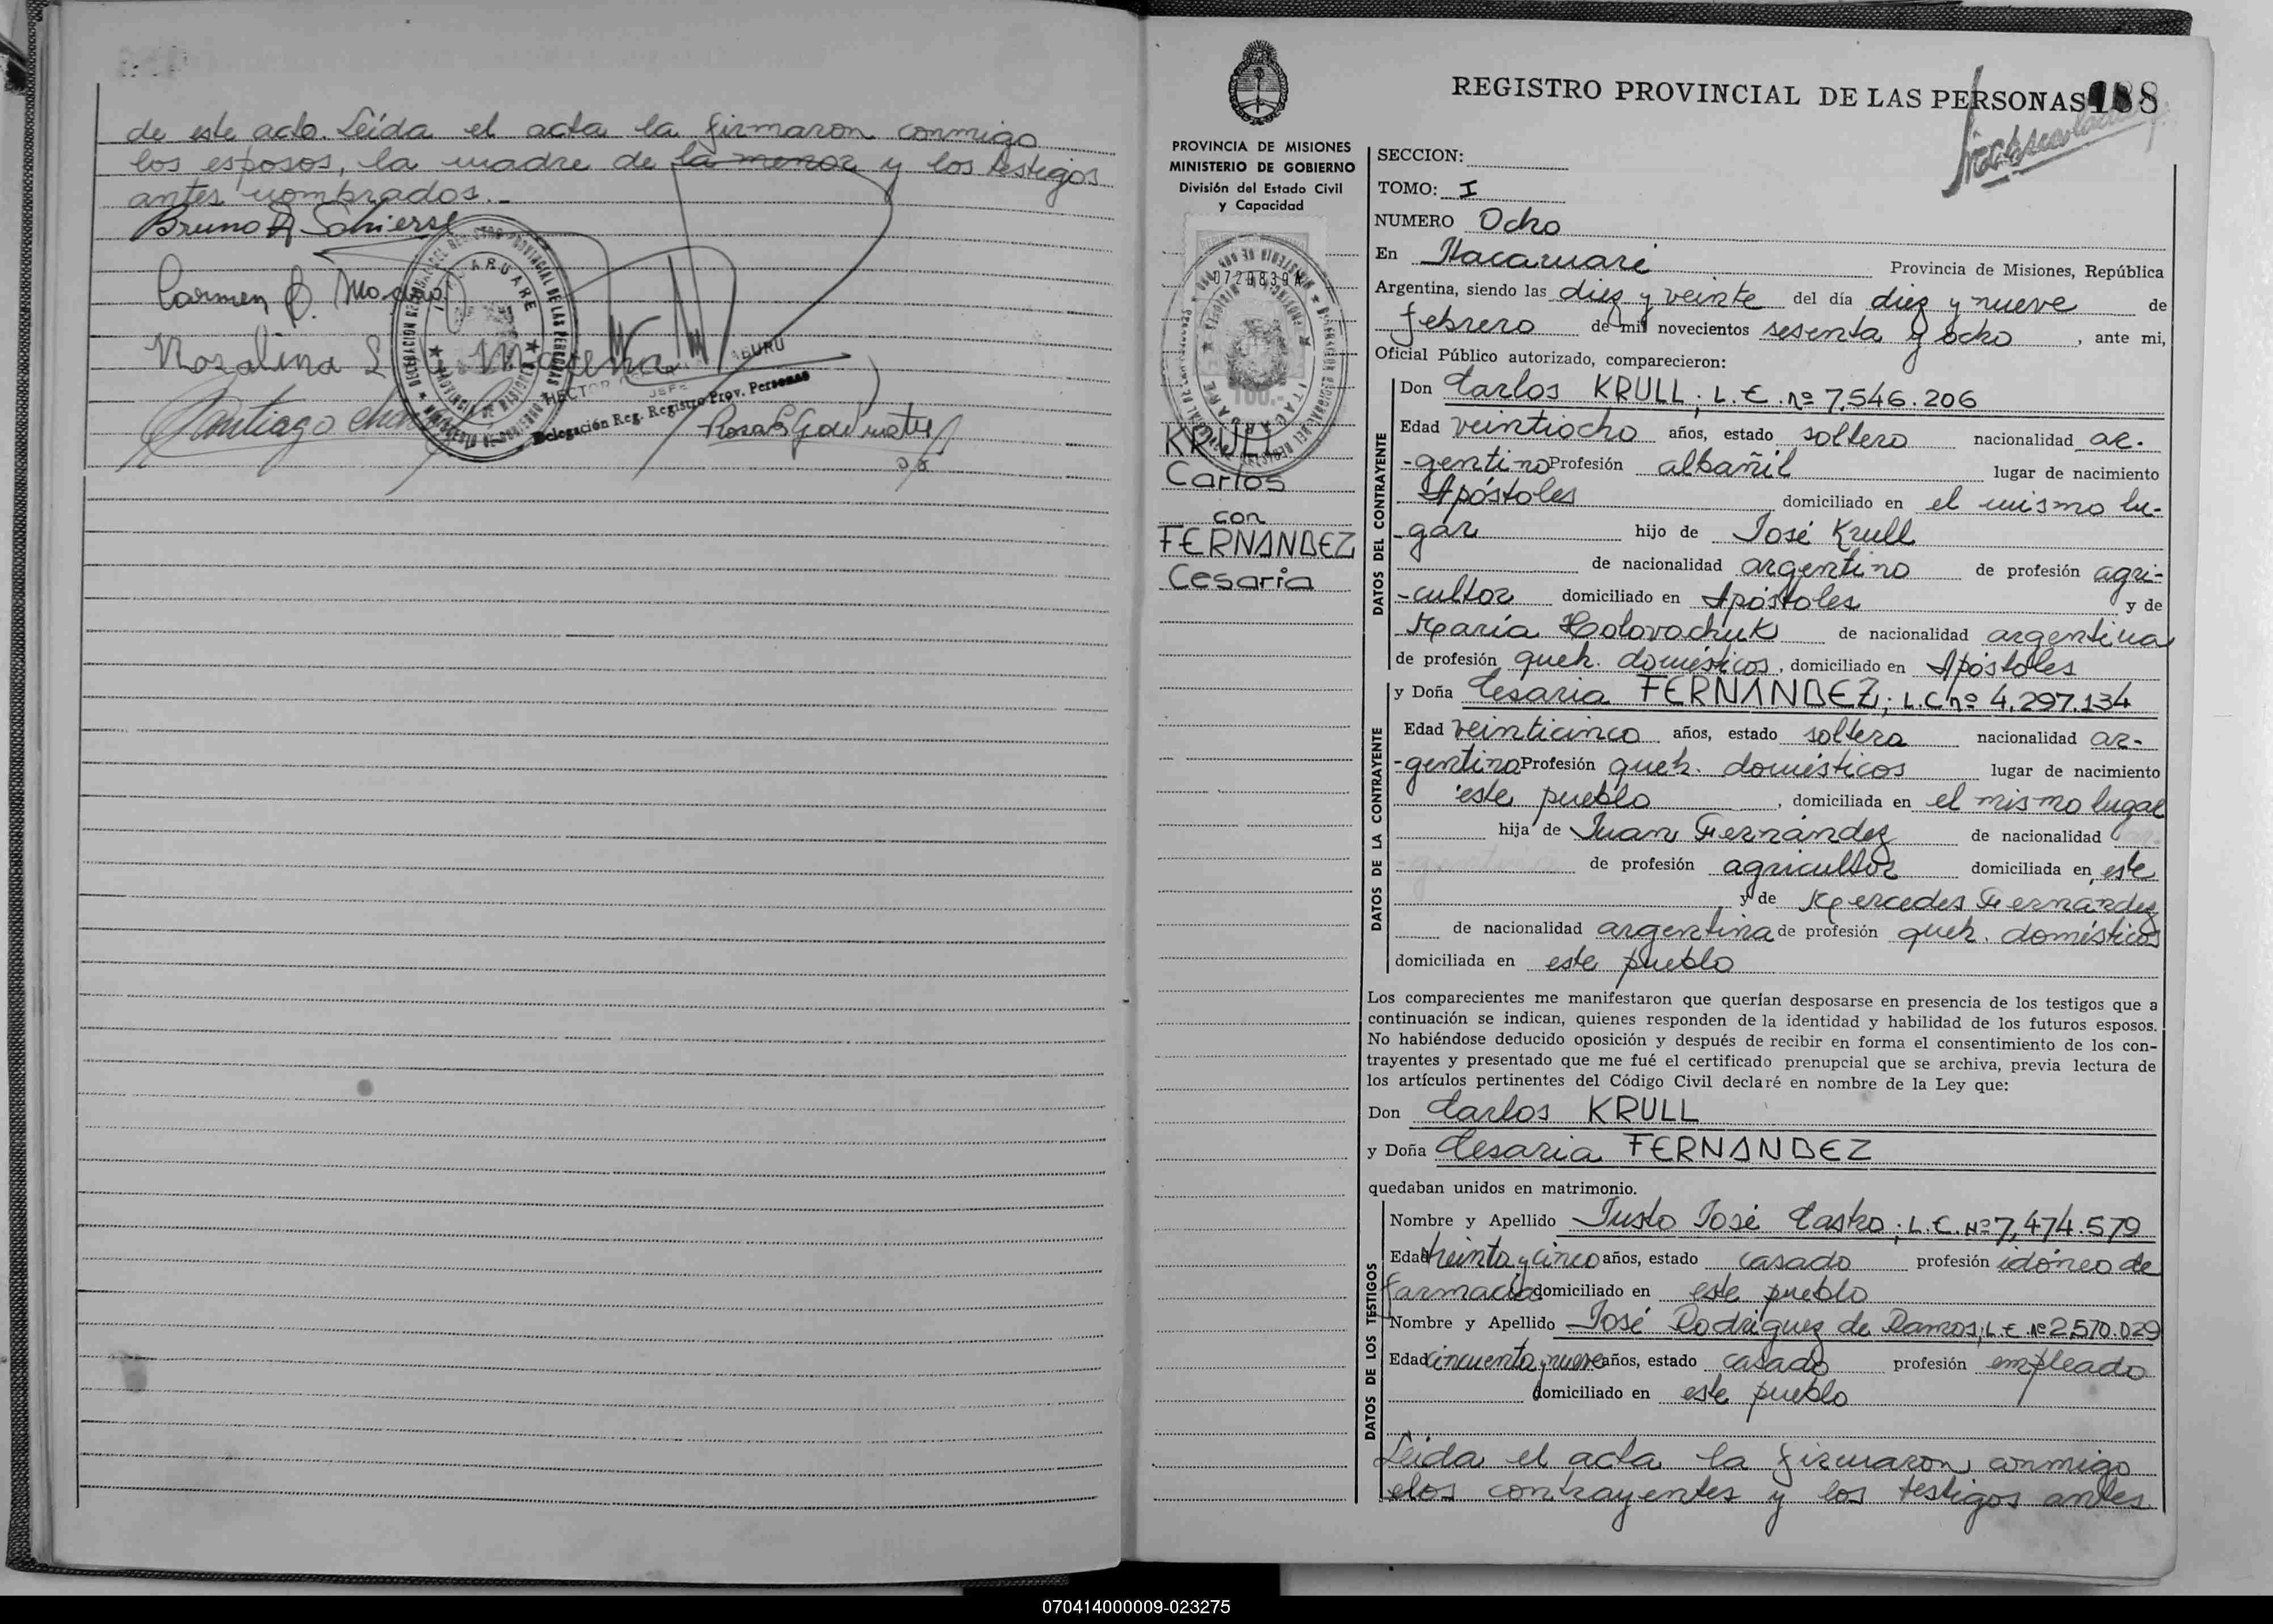 de este acto. Leída el acta la firmaron conmigo
los esposos, la madre de la menor y los testigos
antes nombrados.-
Bruno A Schierse
Carmen R.
Rosalina
Santiago
HECTOR
JEFE
Delegación Reg. Registro Prov. Personas
REGISTRO PROVINCIAL DE LAS PERSONAS 188
PROVINCIA DE MISIONES
MINISTERIO DE GOBIERNO
División del Estado Civil
y Capacidad
0720839
KRULL
Carlos
con
FERNANDEZ
Cesaria
SECCION:
TOMO: I
NUMERO Ocho
En Itacaruaré Provincia de Misiones, República
Argentina, siendo las diez y veinte del día diez y nueve de
febrero de mil novecientos sesenta y ocho, ante mi,
Oficial Público autorizado, comparecieron:
DATOS DEL CONTRAYENTE
Don Carlos KRULL; L.E. nº 7,546.206
Edad veintiocho años, estado soltero nacionalidad ar-
-gentino Profesión albañil lugar de nacimiento
Apóstoles domiciliado en el mismo lu-
-gar hijo de José Krull
de nacionalidad argentino de profesión agri-
-cultor domiciliado en Apóstoles y de
María Holovachuk de nacionalidad argentina
de profesión queh. domésticos, domiciliado en Apóstoles
DATOS DE LA CONTRAYENTE
y Doña Cesaria FERNANDEZ; L.C nº 4.297.134
Edad veinticinco años, estado soltera nacionalidad ar-
-gentina Profesión queh. domésticos lugar de nacimiento
este pueblo, domiciliada en el mismo lugar
hija de Juan Fernández de nacionalidad
de profesión agricultor domiciliada en este
y de Mercedes Fernández
de nacionalidad argentina de profesión queh. domésticos
domiciliada en este pueblo
Los comparecientes me manifestaron que querían desposarse en presencia de los testigos que a
continuación se indican, quienes responden de la identidad y habilidad de los futuros esposos.
No habiéndose deducido oposición y después de recibir en forma el consentimiento de los con-
trayentes y presentado que me fué el certificado prenupcial que se archiva, previa lectura de
los artículos pertinentes del Código Civil declaré en nombre de la Ley que:
Don Carlos KRULL
y Doña Cesaria FERNANDEZ
quedaban unidos en matrimonio.
DATOS DE LOS TESTIGOS
Nombre y Apellido Justo José Castro; L.E. Nº 7,474.579
Edad treinta y cinco años, estado casado profesión idóneo de
farmacia domiciliado en este pueblo
Nombre y Apellido José Rodriguez de Ramos; L.E Nº 2,570.029
Edad cincuenta y nueve años, estado casado profesión empleado
domiciliado en este pueblo
Leida el acta la firmaron conmigo
los contrayentes y los testigos antes
070414000009-023275